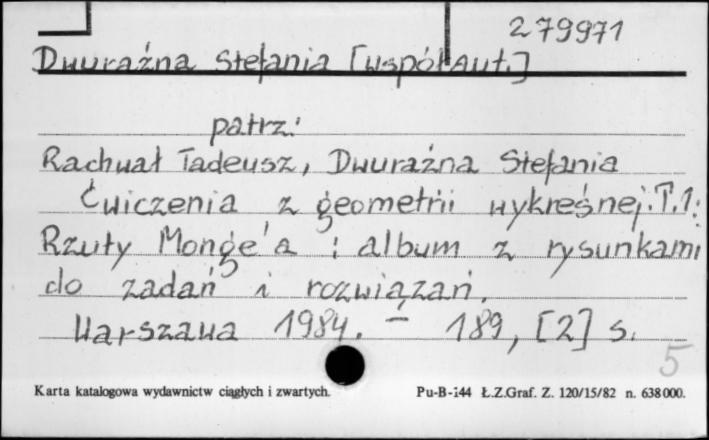 279971
Dwuraźna Stefania [współaut.]
patrz:
Rachwał Tadeusz, Dwuraźna Stefania
Ćwiczenia z geometrii wykreśnej. T.1:
Rzuty Monge'a : album z rysunkami
do zadań i rozwiązań.
Warszawa 1984. – 189, [2] s.
5
Karta katalogowa wydawnictw ciągłych i zwartych. Pu-B-144 Ł.Z.Graf. Z. 120/15/82 n. 638000.